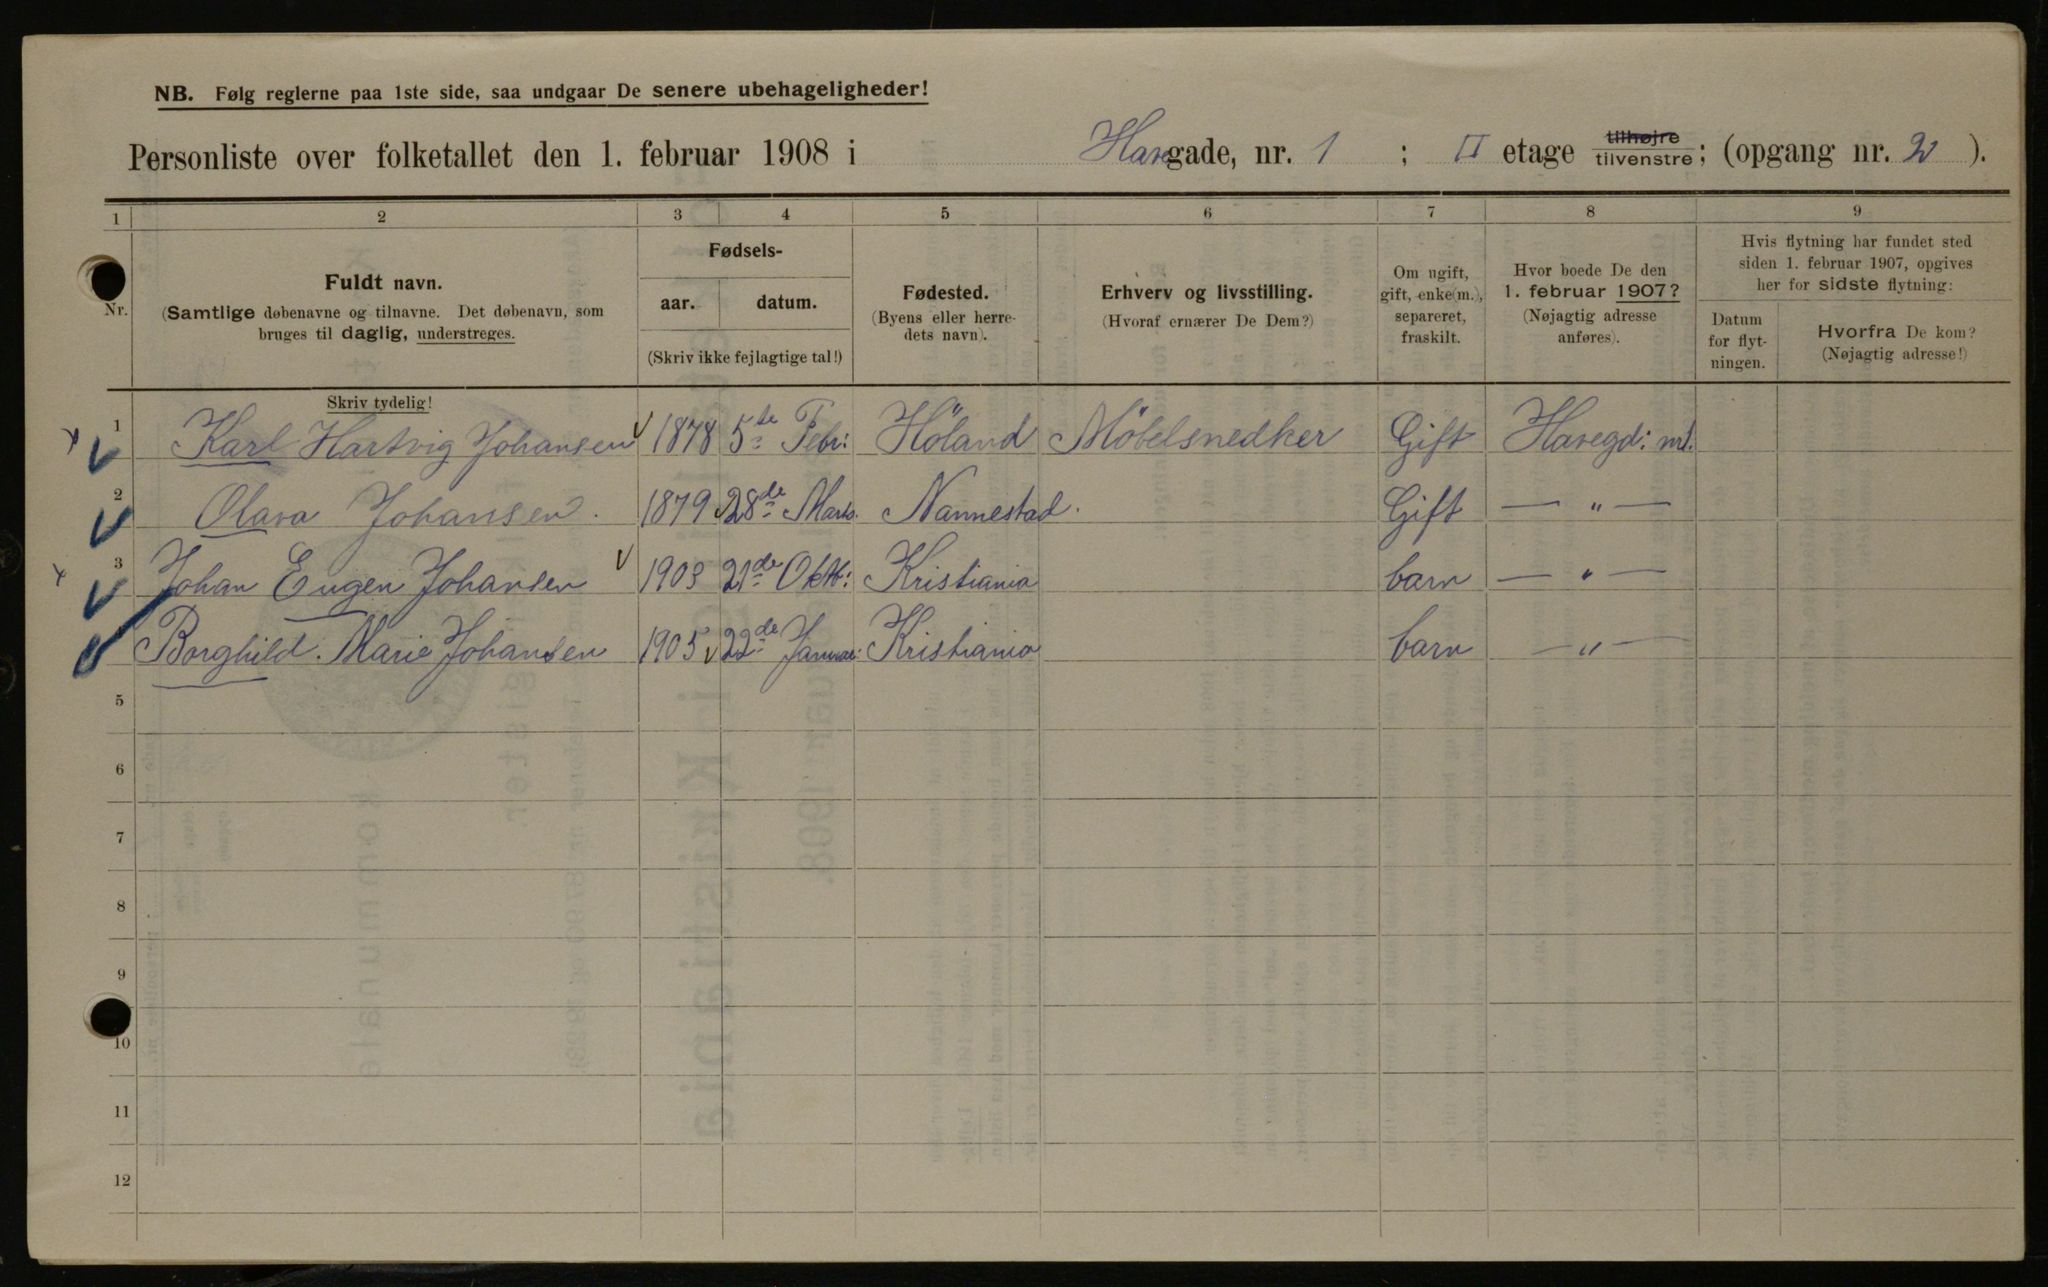 NB. Følg reglerne paa 1ste side, saa undgaar De senere ubehageligheder!
Personliste over folketallet den 1. februar 1908 i Havegade, nr. 1 ; II etage tilhøjre tilvenstre; (opgang nr. 2 ).
1 2 3 4 5 6 7 8 9
Nr.
Fuldt navn.
(Samtlige døbenavne og tilnavne. Det døbenavn, som
bruges til daglig, understreges.
Fødsels-
aar. datum.
(Skriv ikke fejlagtige tal!)
Fødested.
(Byens eller herre-
dets navn).
Erhverv og livsstilling.
(Hvoraf ernærer De Dem?)
Om ugift,
gift, enke(m.),
separeret,
fraskilt.
Hvor boede De den
1. februar 1907?
(Nøjagtig adresse
anføres).
Hvis flytning har fundet sted
siden 1. februar 1907, opgives
her for sidste flytning:
Datum
for flyt-
ningen.
Hvorfra De kom?
(Nøjagtig adresse!)
Skriv tydelig!
1 Karl Hartvig Johansen 1878 5te Febr: Höland Möbelsnedker Gift Havegd: nr 1.
2 Olava Johansen. 1879 28de Marts. Nannestad. Gift — " —
3 Johan Eugen Johansen 1903 21de Oktb: Kristiania barn — " —
Borghild. Marie Johansen 1905 22de Januar: Kristiania barn — " —
5
6
7
8
9
10
11
12